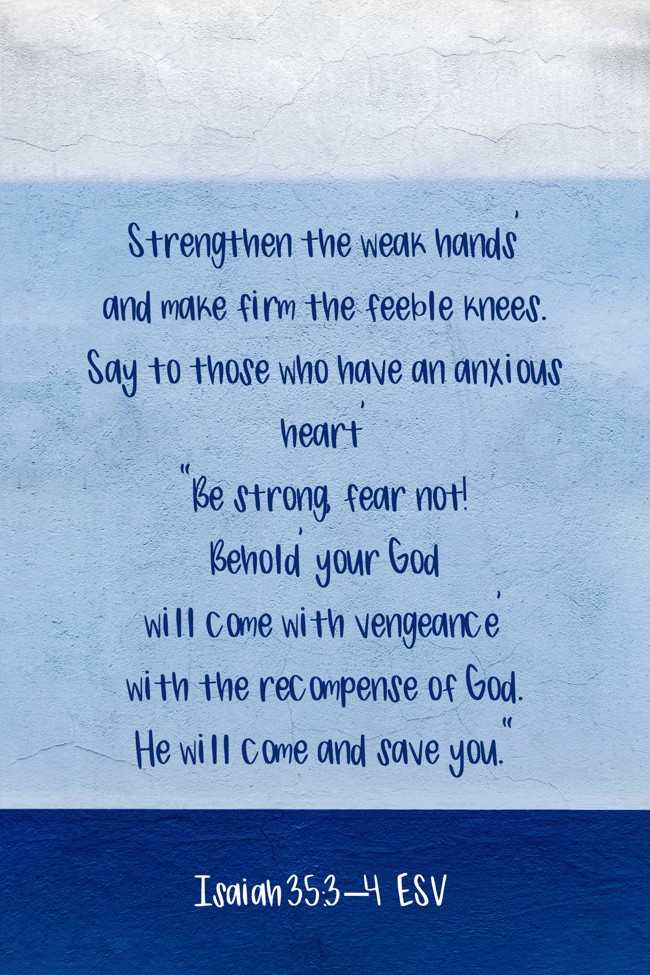 Strengthen the weak hands'
and make firm the feeble knees.
Say to those who have an anxious
heart'
"Be strong, fear not!
Behold' your God
will come with vengeance'
with the recompense of God.
He will come and save you."
Isaiah 35:3—4 ESV